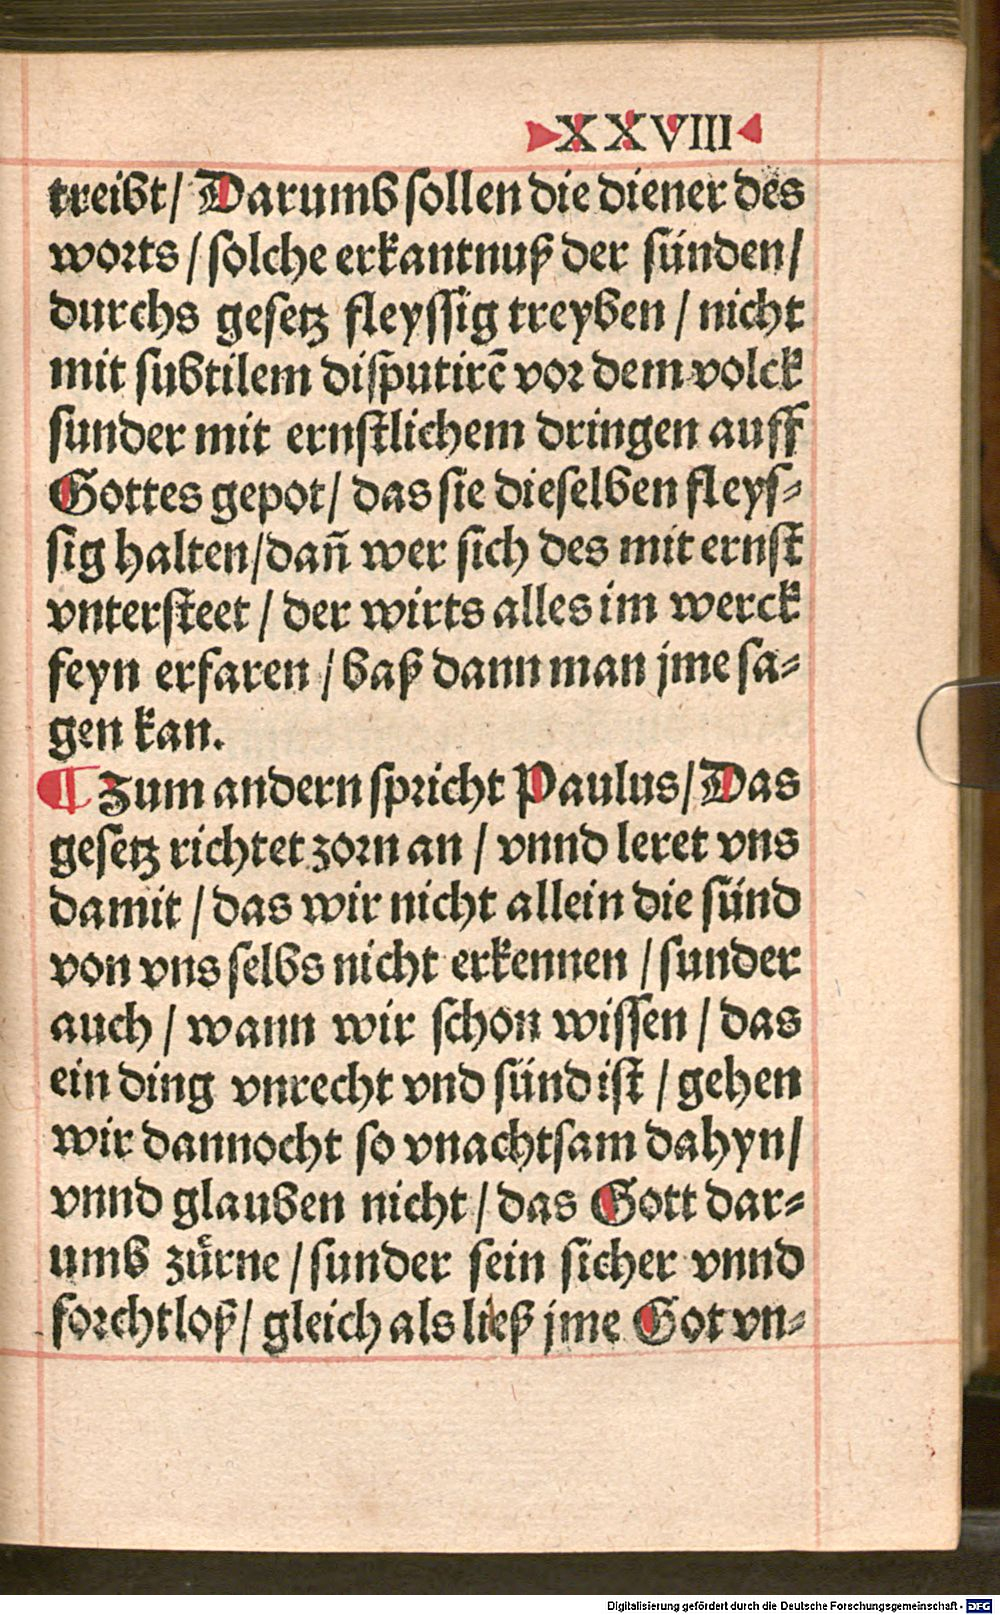 XXVIII
treibt/ Darumb sollen die diener des
worts/ solche erkantnuß der sünden/
durchs gesetz fleyssig treyben/ nicht
mit subtilem disputirē vor dem volck
sunder mit ernstlichem dringen auff
Gottes gepot/ das sie dieselben fleys-
sig halten/ dañ wer sich des mit ernst
vntersteet/ der wirts alles im werck
feyn erfaren/ baß dann man jme sa-
gen kan.
¶ Zum andern spricht Paulus/ Das
gesetz richtet zorn an/ vnnd leret vns
damit/ das wir nicht allein die sünd
von vns selbs nicht erkennen/ sunder
auch/ wann wir schon wissen/ das
ein ding vnrecht vnd sünd ist/ gehen
wir dannocht so vnachtsam dahyn/
vnnd glauben nicht/ das Gott dar-
umb zürne/ sunder sein sicher vnnd
forchtloß/ gleich als ließ jme Got vn-
Digitalisierung gefördert durch die Deutsche Forschungsgemeinschaft - DFG